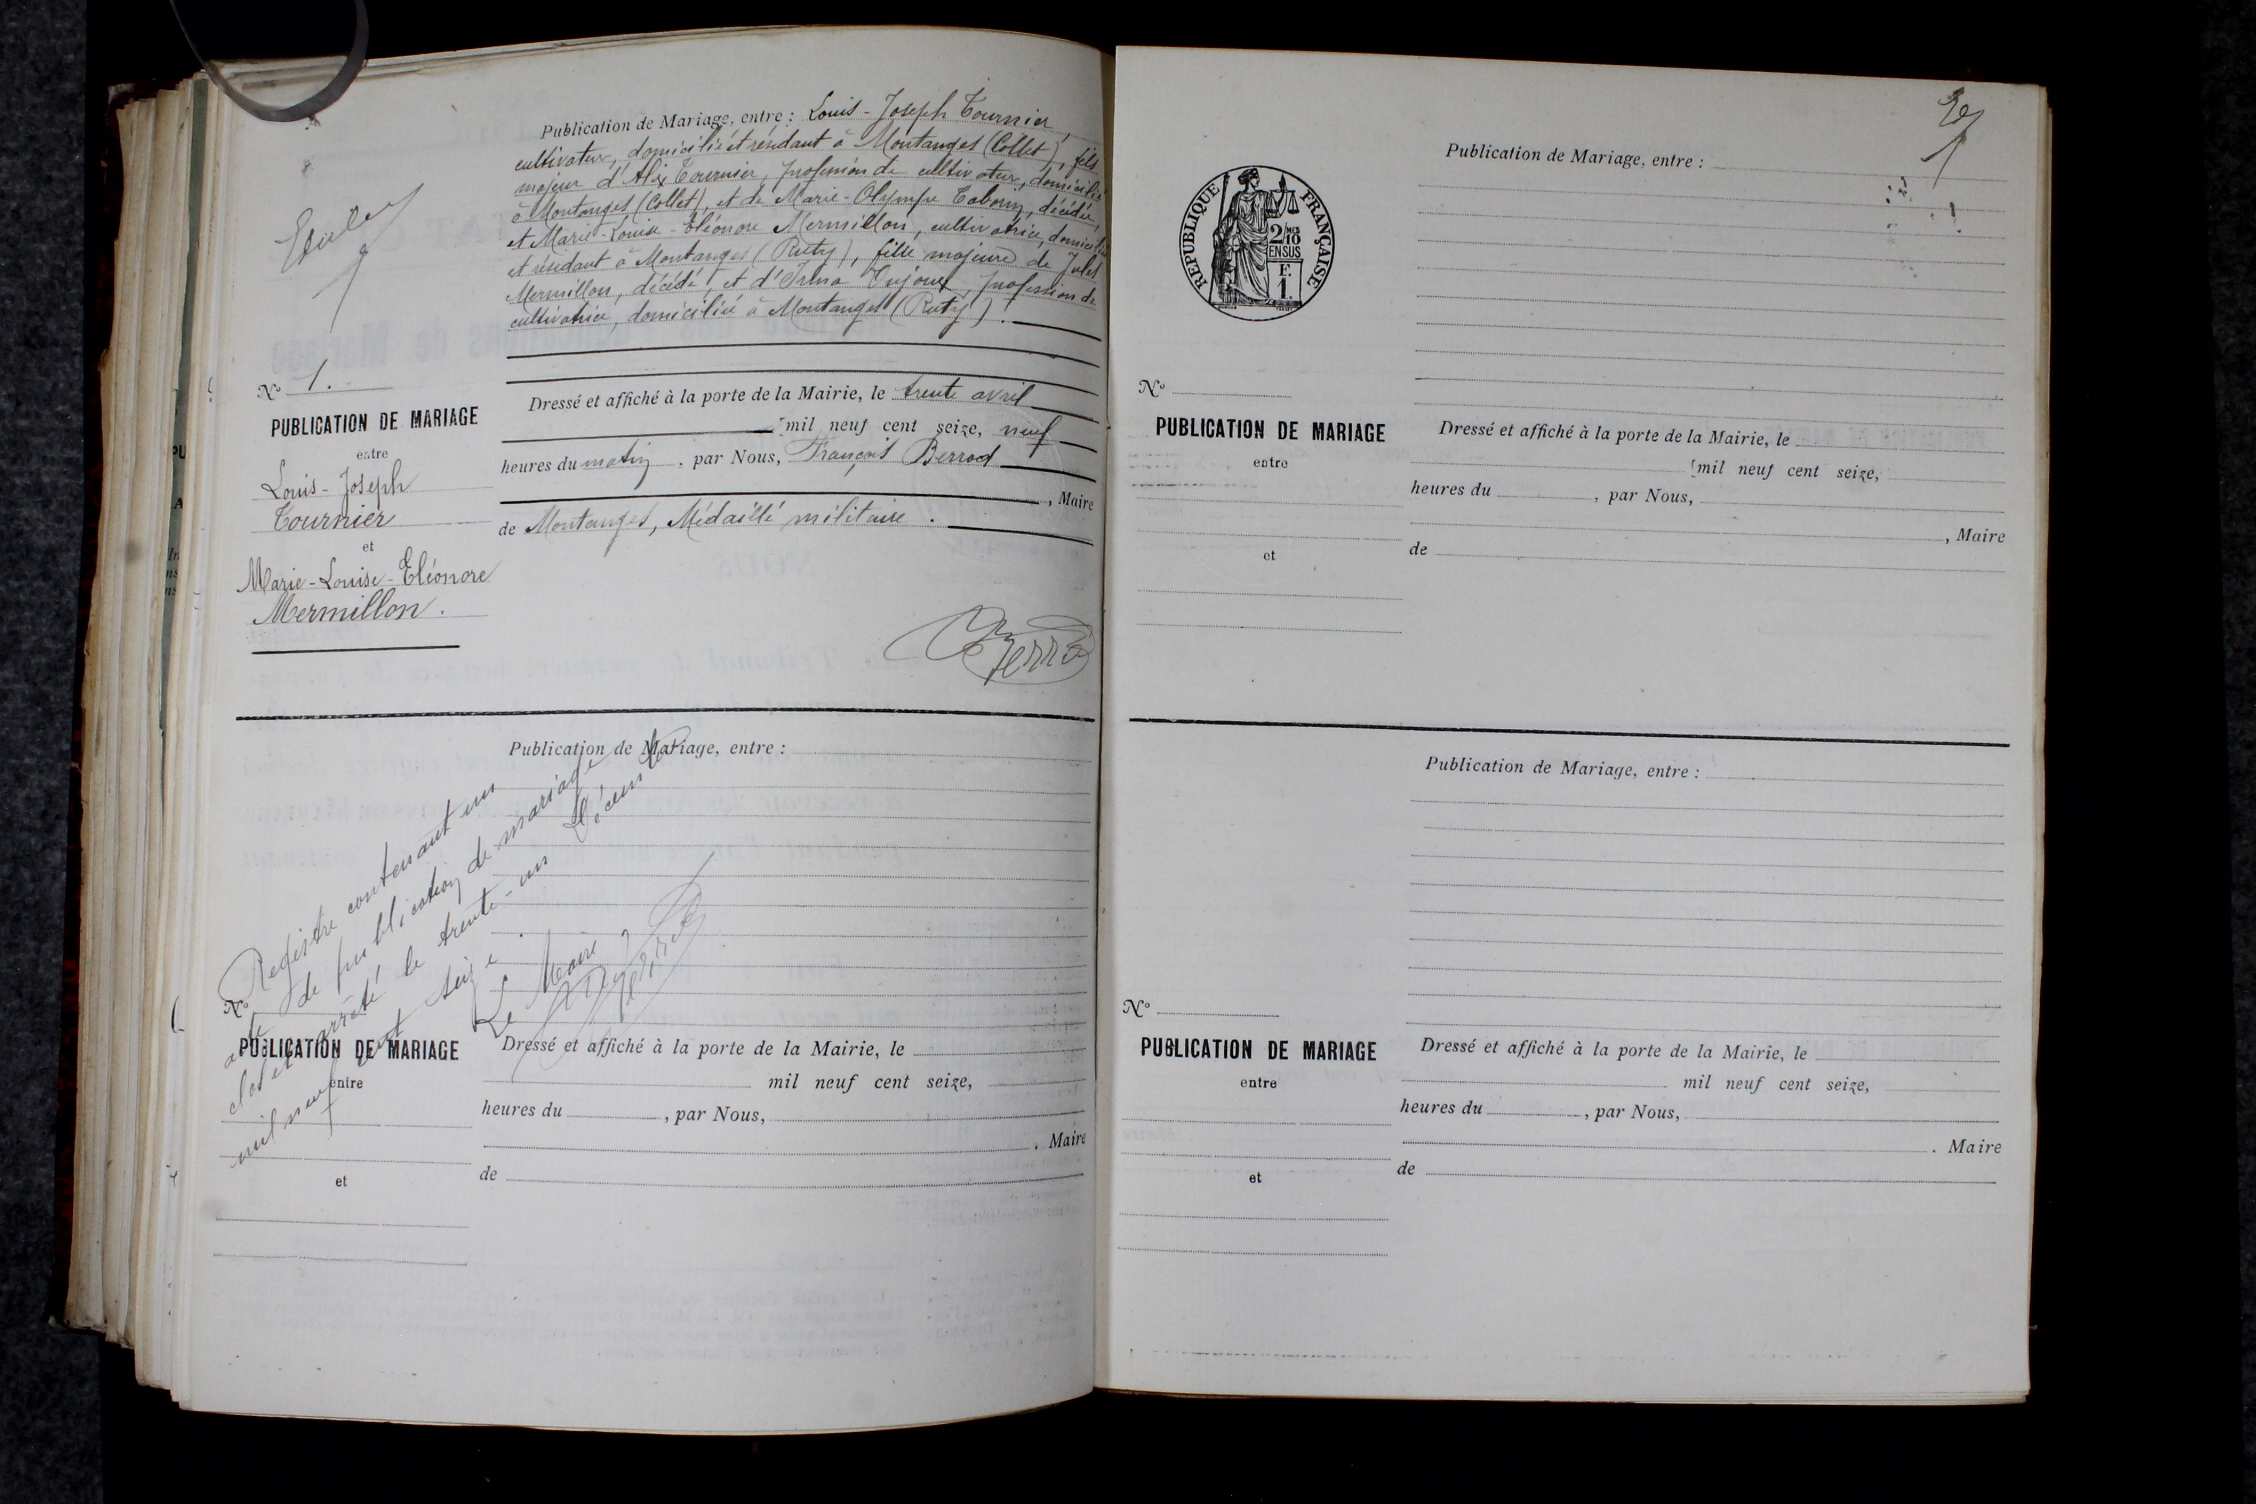 Publication de Mariage, entre : Louis-Joseph Tournier,
cultivateur, domicilié et résidant à Montanges (Collet), fils
majeur d'Alix Tournier, profession de cultivateur, domicilié
à Montanges (Collet), et de Marie-Olympe décédée,
et Marie-Louise-Eléonore Mermillon, cultivatrice, domiciliée
et résidant à Montanges (Ruty), fille majeure de Jules
Mermillon, décédé, et d'Irma profession de
cultivatrice, domiciliée à Montanges (Ruty).
N° 1.
PUBLICATION DE MARIAGE
entre
Louis-Joseph
Tournier
et
Marie-Louise-Eléonore
Mermillon.
Dressé et affiché à la porte de la Mairie, le trente avril
mil neuf cent seize, neuf
heures du matin, par Nous, François Berrod
, Maire
de Montanges, Médaillé militaire.
Publication de Mariage, entre :
Registre contenant un
acte de publication de mariage
clos et arrêté le trente-un Décembre
mil neuf cent seize.
Le Maire,
N°
PUBLICATION DE MARIAGE
entre
et
Dressé et affiché à la porte de la Mairie, le
mil neuf cent seize,
heures du , par Nous,
. Maire
de
REPUBLIQUE FRANÇAISE
2/10
EN SUS
F.
1.
Publication de Mariage, entre :
N°
PUBLICATION DE MARIAGE
entre
et
Dressé et affiché à la porte de la Mairie, le
mil neuf cent seize,
heures du , par Nous,
, Maire
de
Publication de Mariage, entre :
N°
PUBLICATION DE MARIAGE
entre
et
Dressé et affiché à la porte de la Mairie, le
mil neuf cent seize,
heures du , par Nous,
. Maire
de